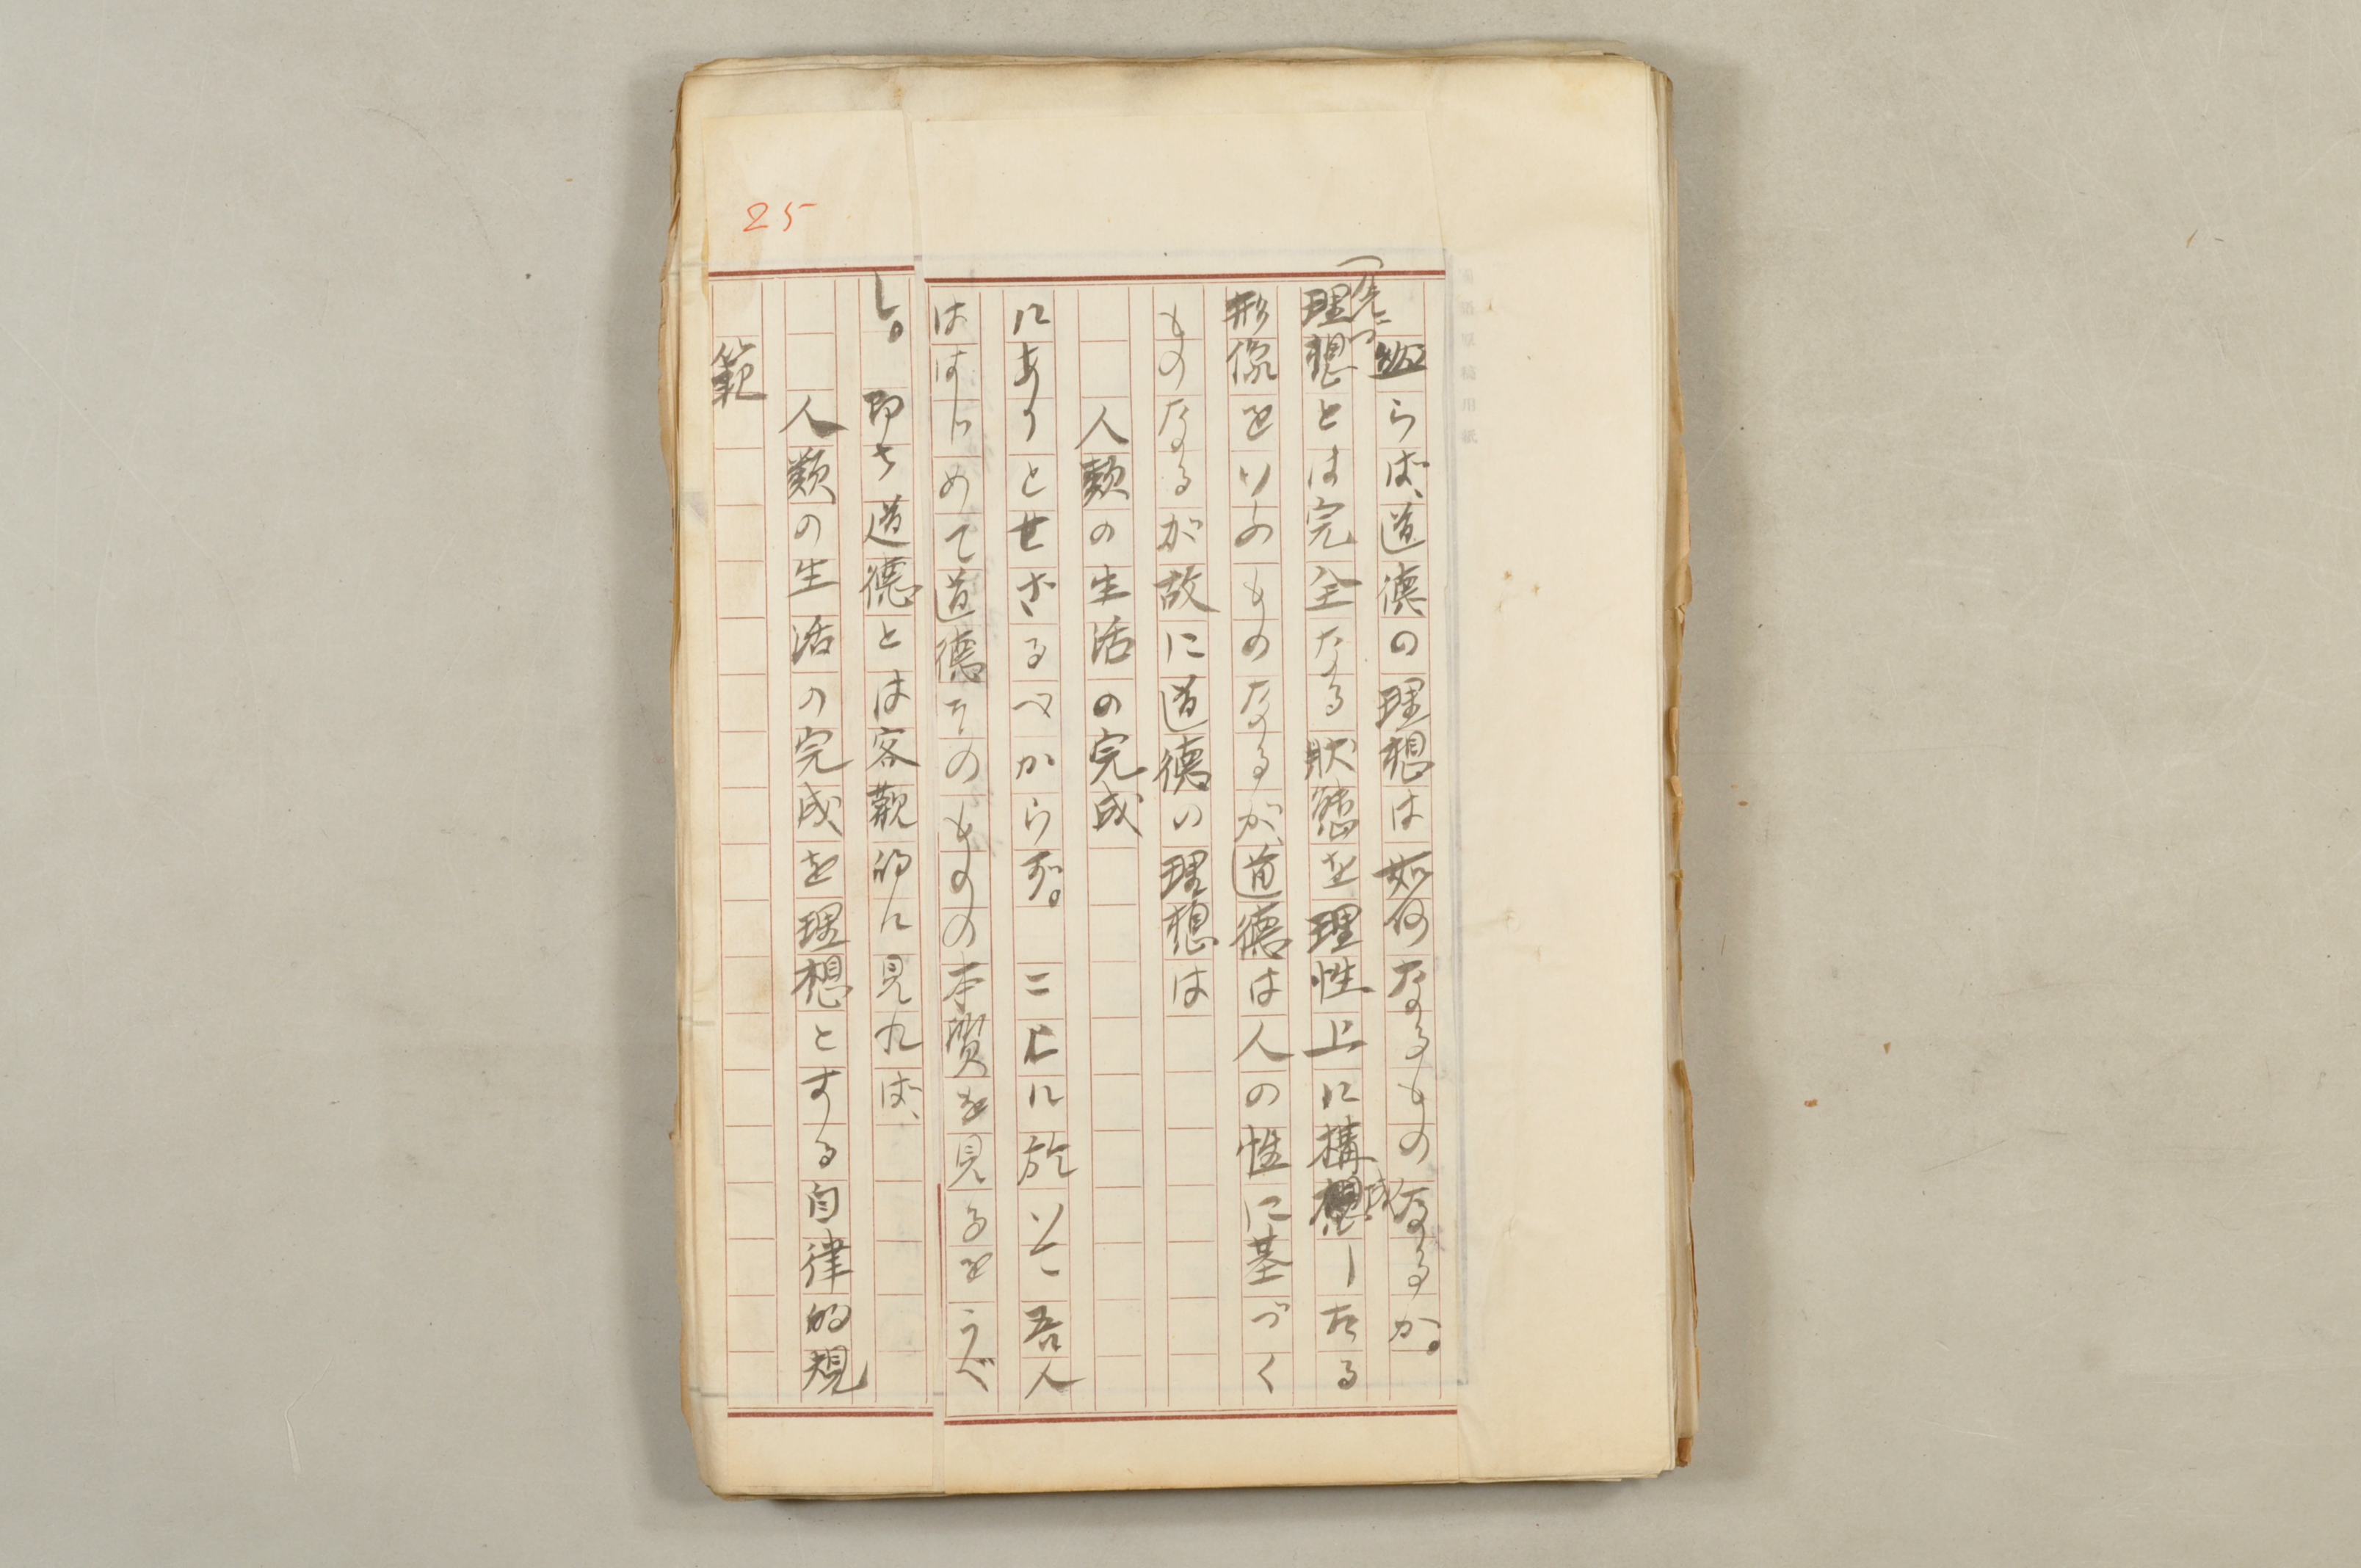 25
然らば、道德の理想は如何なるものなるか。
理想とは完全なる狀態を理性上に構成したる
形像をいふものなるが、道德は人の性に基づく
ものなるが故に道德の理想は
人類の生活の完成
にありとせざるべからず。ここに於いて吾人
ははじめて道德そのものの本質を見るをうべ
し。即ち道德とは客觀的に見れば、
人類の生活の完成を理想とする自律的規
範